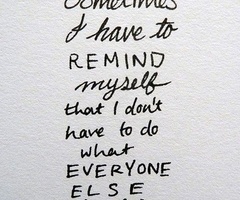 Sometimes
I have to
REMIND
myself
that I don't
have to do
what
EVERYONE
ELSE